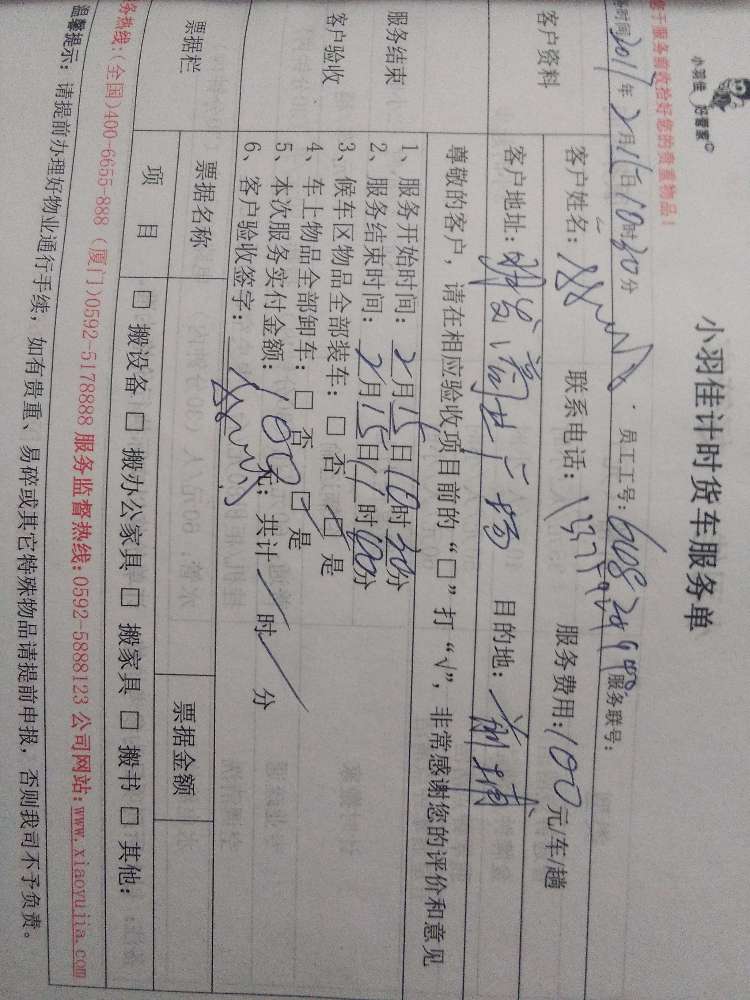 小羽佳 好管家
小羽佳计时货车服务单
于服务前收拾好您的贵重物品！
时间2011年2月15日10时30分 员工工号： 服务联号：
客户资料
客户姓名： 联系电话： 服务费用：100元/车/趟
客户地址： 广场 目的地：前埔
尊敬的客户，请在相应验收项目前的“□”打“√”，非常感谢您的评价和意见
服务结束
客户验收
1、服务开始时间：2月15日10时30分
2、服务结束时间：2月15日11时00分
3、候车区物品全部装车：□ 否 □ 是
4、车上物品全部卸车：□ 否 □ 是
5、本次服务实付金额：100元；共计 时 分
6、客户验收签字：
票据栏
票据名称 票据金额
项 目 □ 搬设备 □ 搬办公家具 □ 搬家具 □ 搬书 □ 其他：
务热线：(全国)400-6655-888 (厦门)0592-5178888 服务监督热线：0592-5888123 公司网站：www.xiaoyujia.com
温馨提示：请提前办理好物业通行手续，如有贵重、易碎或其它特殊物品请提前申报，否则我司不予负责。